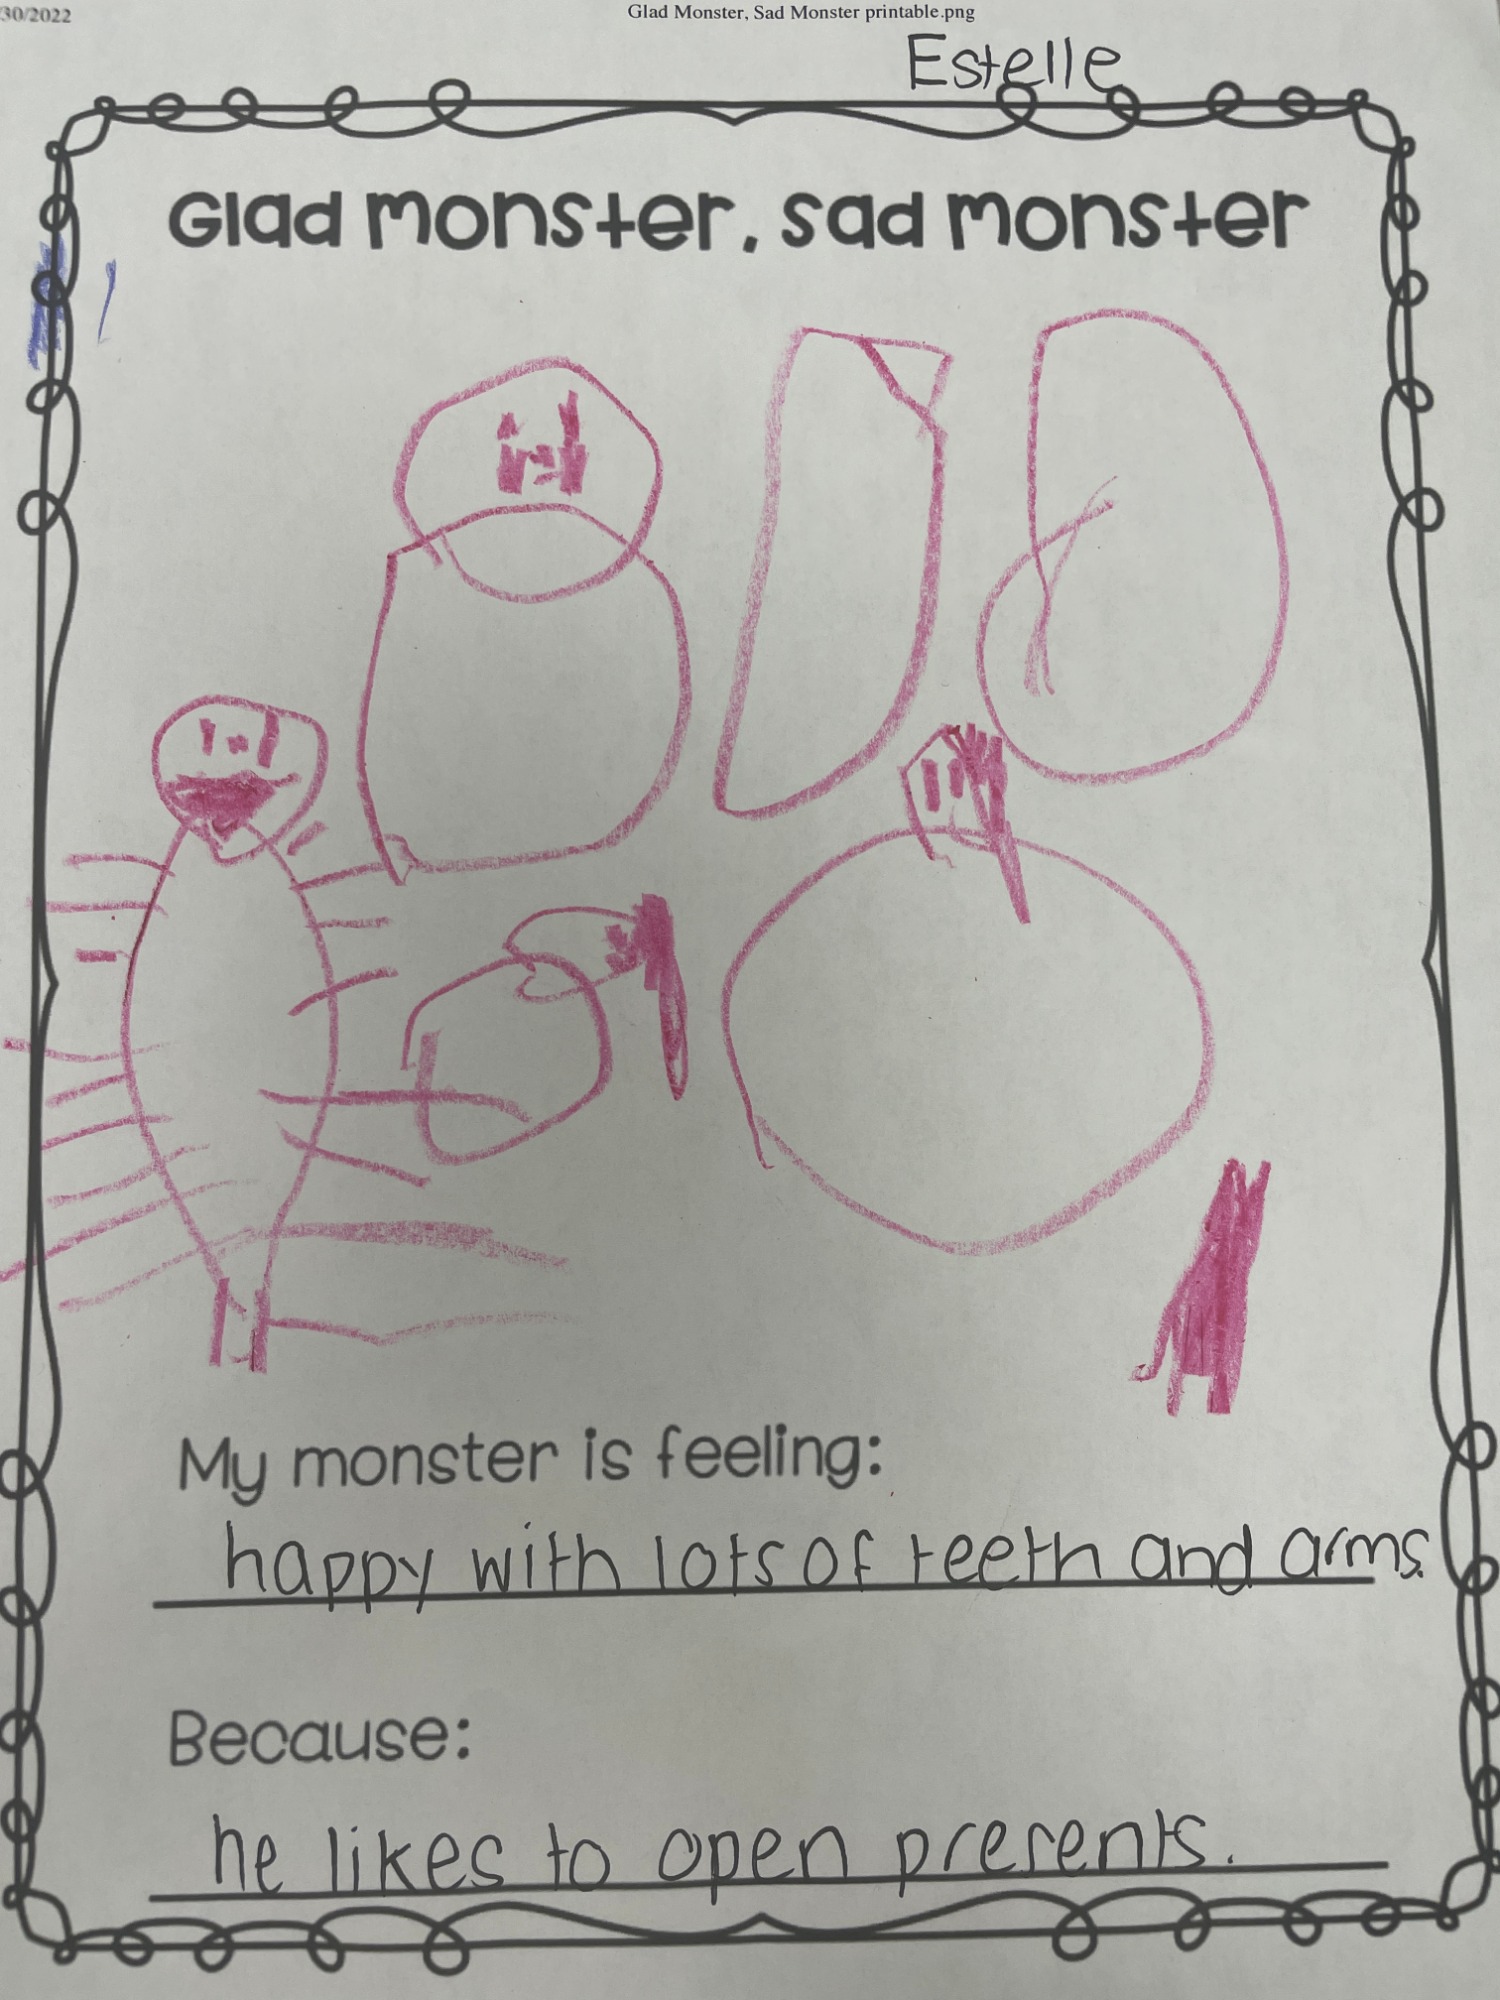 30/2022
Glad Monster, Sad Monster printable.png
Estelle
Glad monster, sad monster
My monster is feeling:
happy with lots of teeth and arms.
Because:
he likes to open presents.